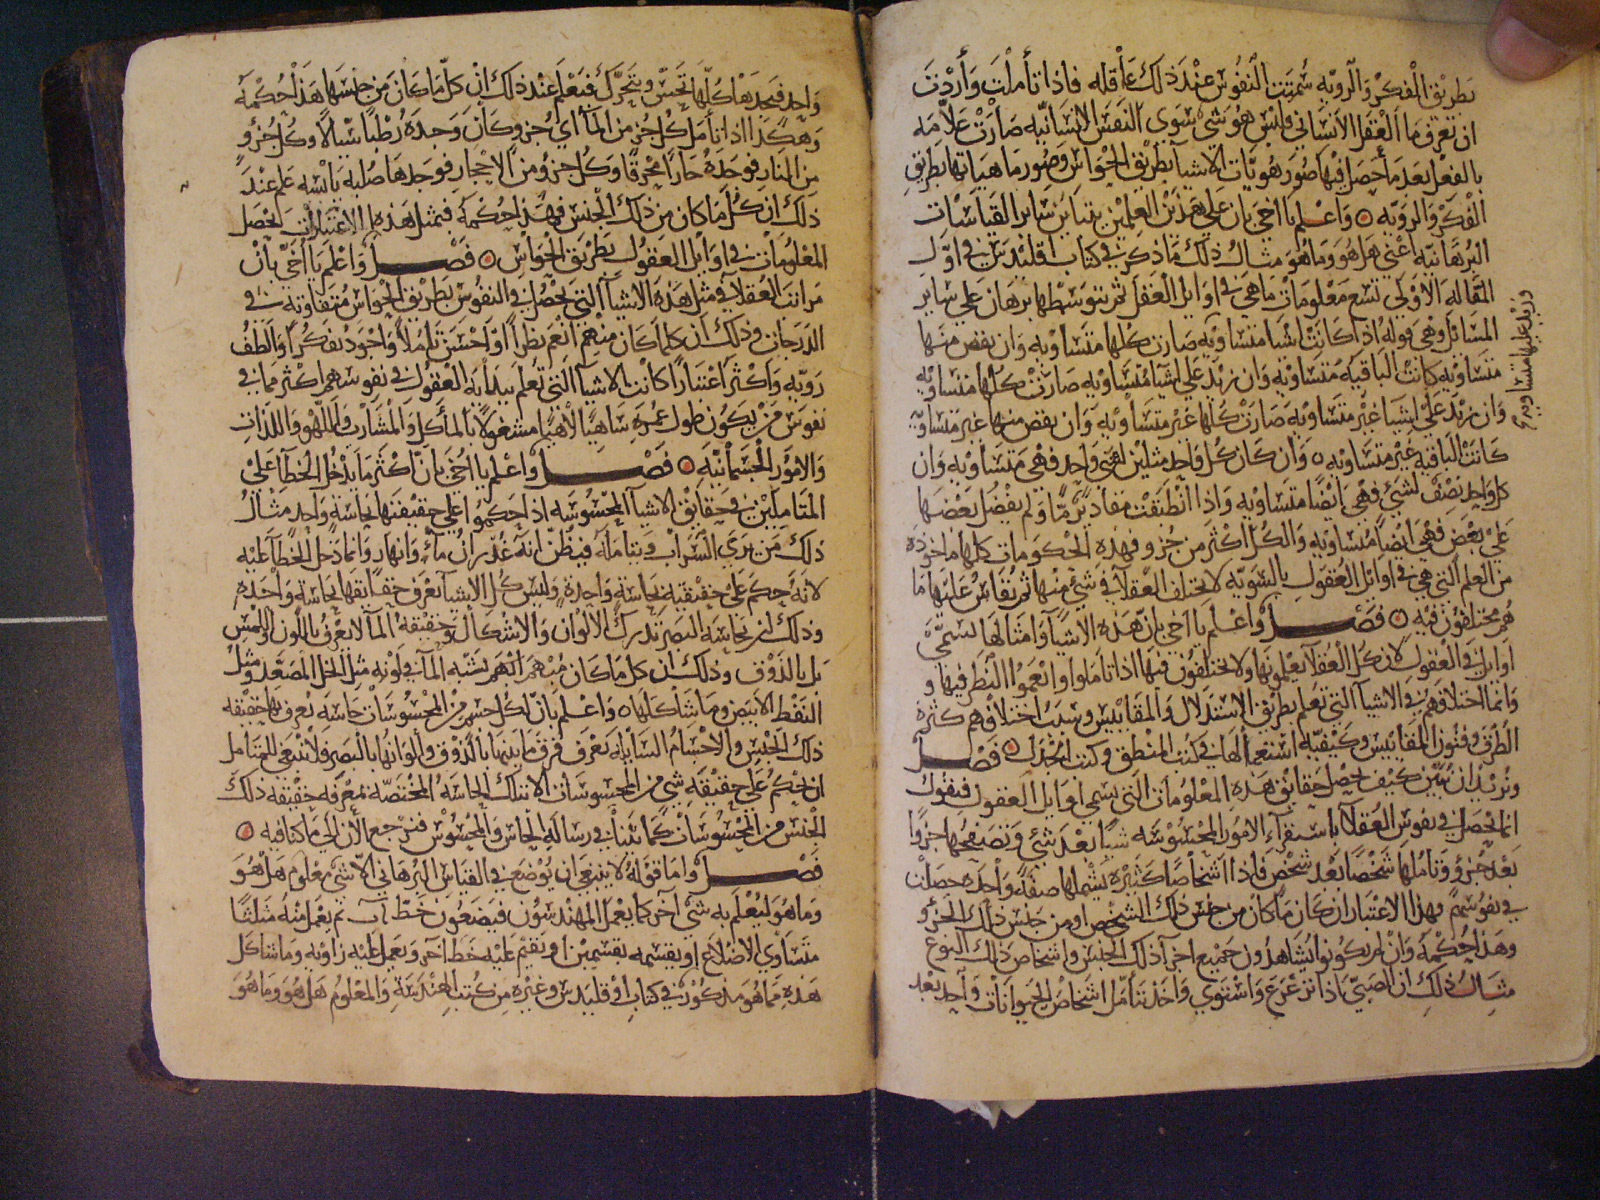 بطريق الفكر والرويه سميت النفوس عند ذلك عاقله فاذا تأملت وأردت
ان تعرف ما العقل الانساني فليس هو شي سوى النفس الانسانيه صارت علامه
بالفعل بعد ما حصل فيها صور هويات الاشيا بطريق الحواس وصور ماهياتها بطريق
الفكر والرويه واعلم يا اخي بان على هذين العلمين ينبنا سائر القياسات
البرهانيه اعني هل هو وما هو مثال ذلك ما ذكر في كتاب اقليدس في اول
المقاله الاولى تسع معلومات ما هي في اوايل العقل ثم بتوسطها برهان على ساير
المسائل وهي قوله اذا كانت اشيا متساويه صارت كلها متساويه وان نقص منها
متساويه كانت الباقيه متساويه وان زيد على اشيا متساويه صارت كلها متساويه
وان زيد على اشيا غير متساويه صارت كلها غير متساويه وان نقص منها غير متساويه
كانت الباقيه غير متساويه وان كان كل واحد مثلين لشي واحد فهي متساويه وان
كل واحد نصف لشي فهي ايضا متساويه واذا انطبقت مقادير ما ولم يفضل بعضها
على بعض فهي ايضا متساويه والكل اكثر من جزو فهذه الحكومات كلها ماخوذه
من العلم التي هي في اوائل العقول بالسويه لا يختلف العقلا في شي منها ثم يقاس عليها ما
هم مختلفون فيه فصل واعلم يا اخي بان هذه الاشيا وامثالها تسمى
اوايل في العقول لان كل العقلا يعلمونها ولا يختلفون فيها اذا تاملوا وانعموا النظر فيها و
وانما اختلافهم في الاشيا التي تعلم بطريق الاستدلال والمقاييس وسبب اختلافهم كثرة
الطرق وفنون المقاييس وكيفية استعمالها في كتب المنطق وكتب الجدل فصل
ونريد ان نبين كيف يحصل حقائق هذه المعلومات التي يسمى اوايل العقول فنقول
انما تحصل في نفوس العقلا باستقراء الامور المحسوسه شيا بعد شي وتصفحها جزوا
بعد جزو وتاملها شخصا بعد شخص فاذا اشخاصا كثيره يشملها صفة واحده حصلت
في نفوسهم بهذا الاعتبار ان كان ما كان من جنس ذلك الشخص او من جنس ذلك الجزو
وهذا حكمه وان لم يكونوا يشاهدون جميع اجزآ ذلك الجنس واشخاص ذلك النوع
مثال ذلك ان الصبي اذا ترعرع واستوى واخذ تتأمل اشخاص الحيوانات واحد بعد
وزيد عليها متساويه
واحد فيجدها كلها تحس وتتحرك فتعلم عند ذلك ان كل ما كان من جنسها هذا حكمه
وهكذا اذا تأمل كل جز من المآ اي جز وكان وجده رطبا سيالا وكل جزو
من النار فوجده حارا محرقا وكل جزو من الاحجار فوجدها صلبه يابسه علم عند
ذلك ان كل ما كان من ذلك الجنس فهذا حكمه فبمثل هذه الاعتبارات يحصل
المعلومات في اوايل العقول بطريق الحواس فصل واعلم يا اخي بان
مراتب العقلا في مثل هذه الاشيآ التي تحصل في النفوس بطريق الحواس متفاوته في
الدرجات وذلك ان كلما كان منهم انعم نظرا واحسن تأملا واجود تفكرا والطف
رويه واكثر اعتبارا كانت الاشيآ التي تعلم ببداية العقول في نفوسهم اكثر مما في
نفوس من يكون طول عمره ساهيا لاهيا مشغولا بالمأكل والمشارب واللهو واللذات
والامور الجسمانيه فصل واعلم يا اخي بان اكثر ما يدخل الخطآ على
المتاملين في حقائق الاشيآ المحسوسه اذ احكموا على حقيقتها بحاسة واحده مثال
ذلك من يرى السراب ويتامله فيظن انه غدران مآء وانهار وانما دخل الخطآ عليه
لانه حكم على حقيقته بحاسة واحدة وليس كل الاشيآ تعرف حقايقها بحاسة واحده
وذلك ان بحاسة البصر تدرك الالوان والاشكال وحقيقة المآ لا تعرف باللون واللمس
بل بالذوق وذلك ان كل ما كان منهم انهم يشبه المآ في لونه مثل الخل المصعد ومثل
النفط الابيض وما شاكلها واعلم بان لكل جنس من المحسوسات حاسه تعرف بها حقيقه
ذلك الجنس والاجسام السيالة تعرف فرق ما بينها بالذوق والوانها بالبصر ولا ينبغي للمتأمل
ان يحكم على حقيقة شي من المحسوسات الا بتلك الحاسة المختصه بمعرفة حقيقة ذلك
الجنس من المحسوسات كما بينا في رسالة الحاس والمحسوس فنرجع الآن الى ما كنا فيه
فصل واما قوله لا ينبغي ان يوضع في القياس البرهاني الا شي معلوم هل هو
وما هو ليعلم به شي آخر كما يعمل المهندسون فيضعون خط آ ب ثم يعمل منه مثلثا
متساوي الاضلاع او يقسمه بقسمين او يقيم عليه خط آخر ويعمل عليه زاويه وما شاكل
هذه مما هو مذكور في كتاب اقليدس وغيره من كتب الهندسة والمعلوم هل هو وما هو